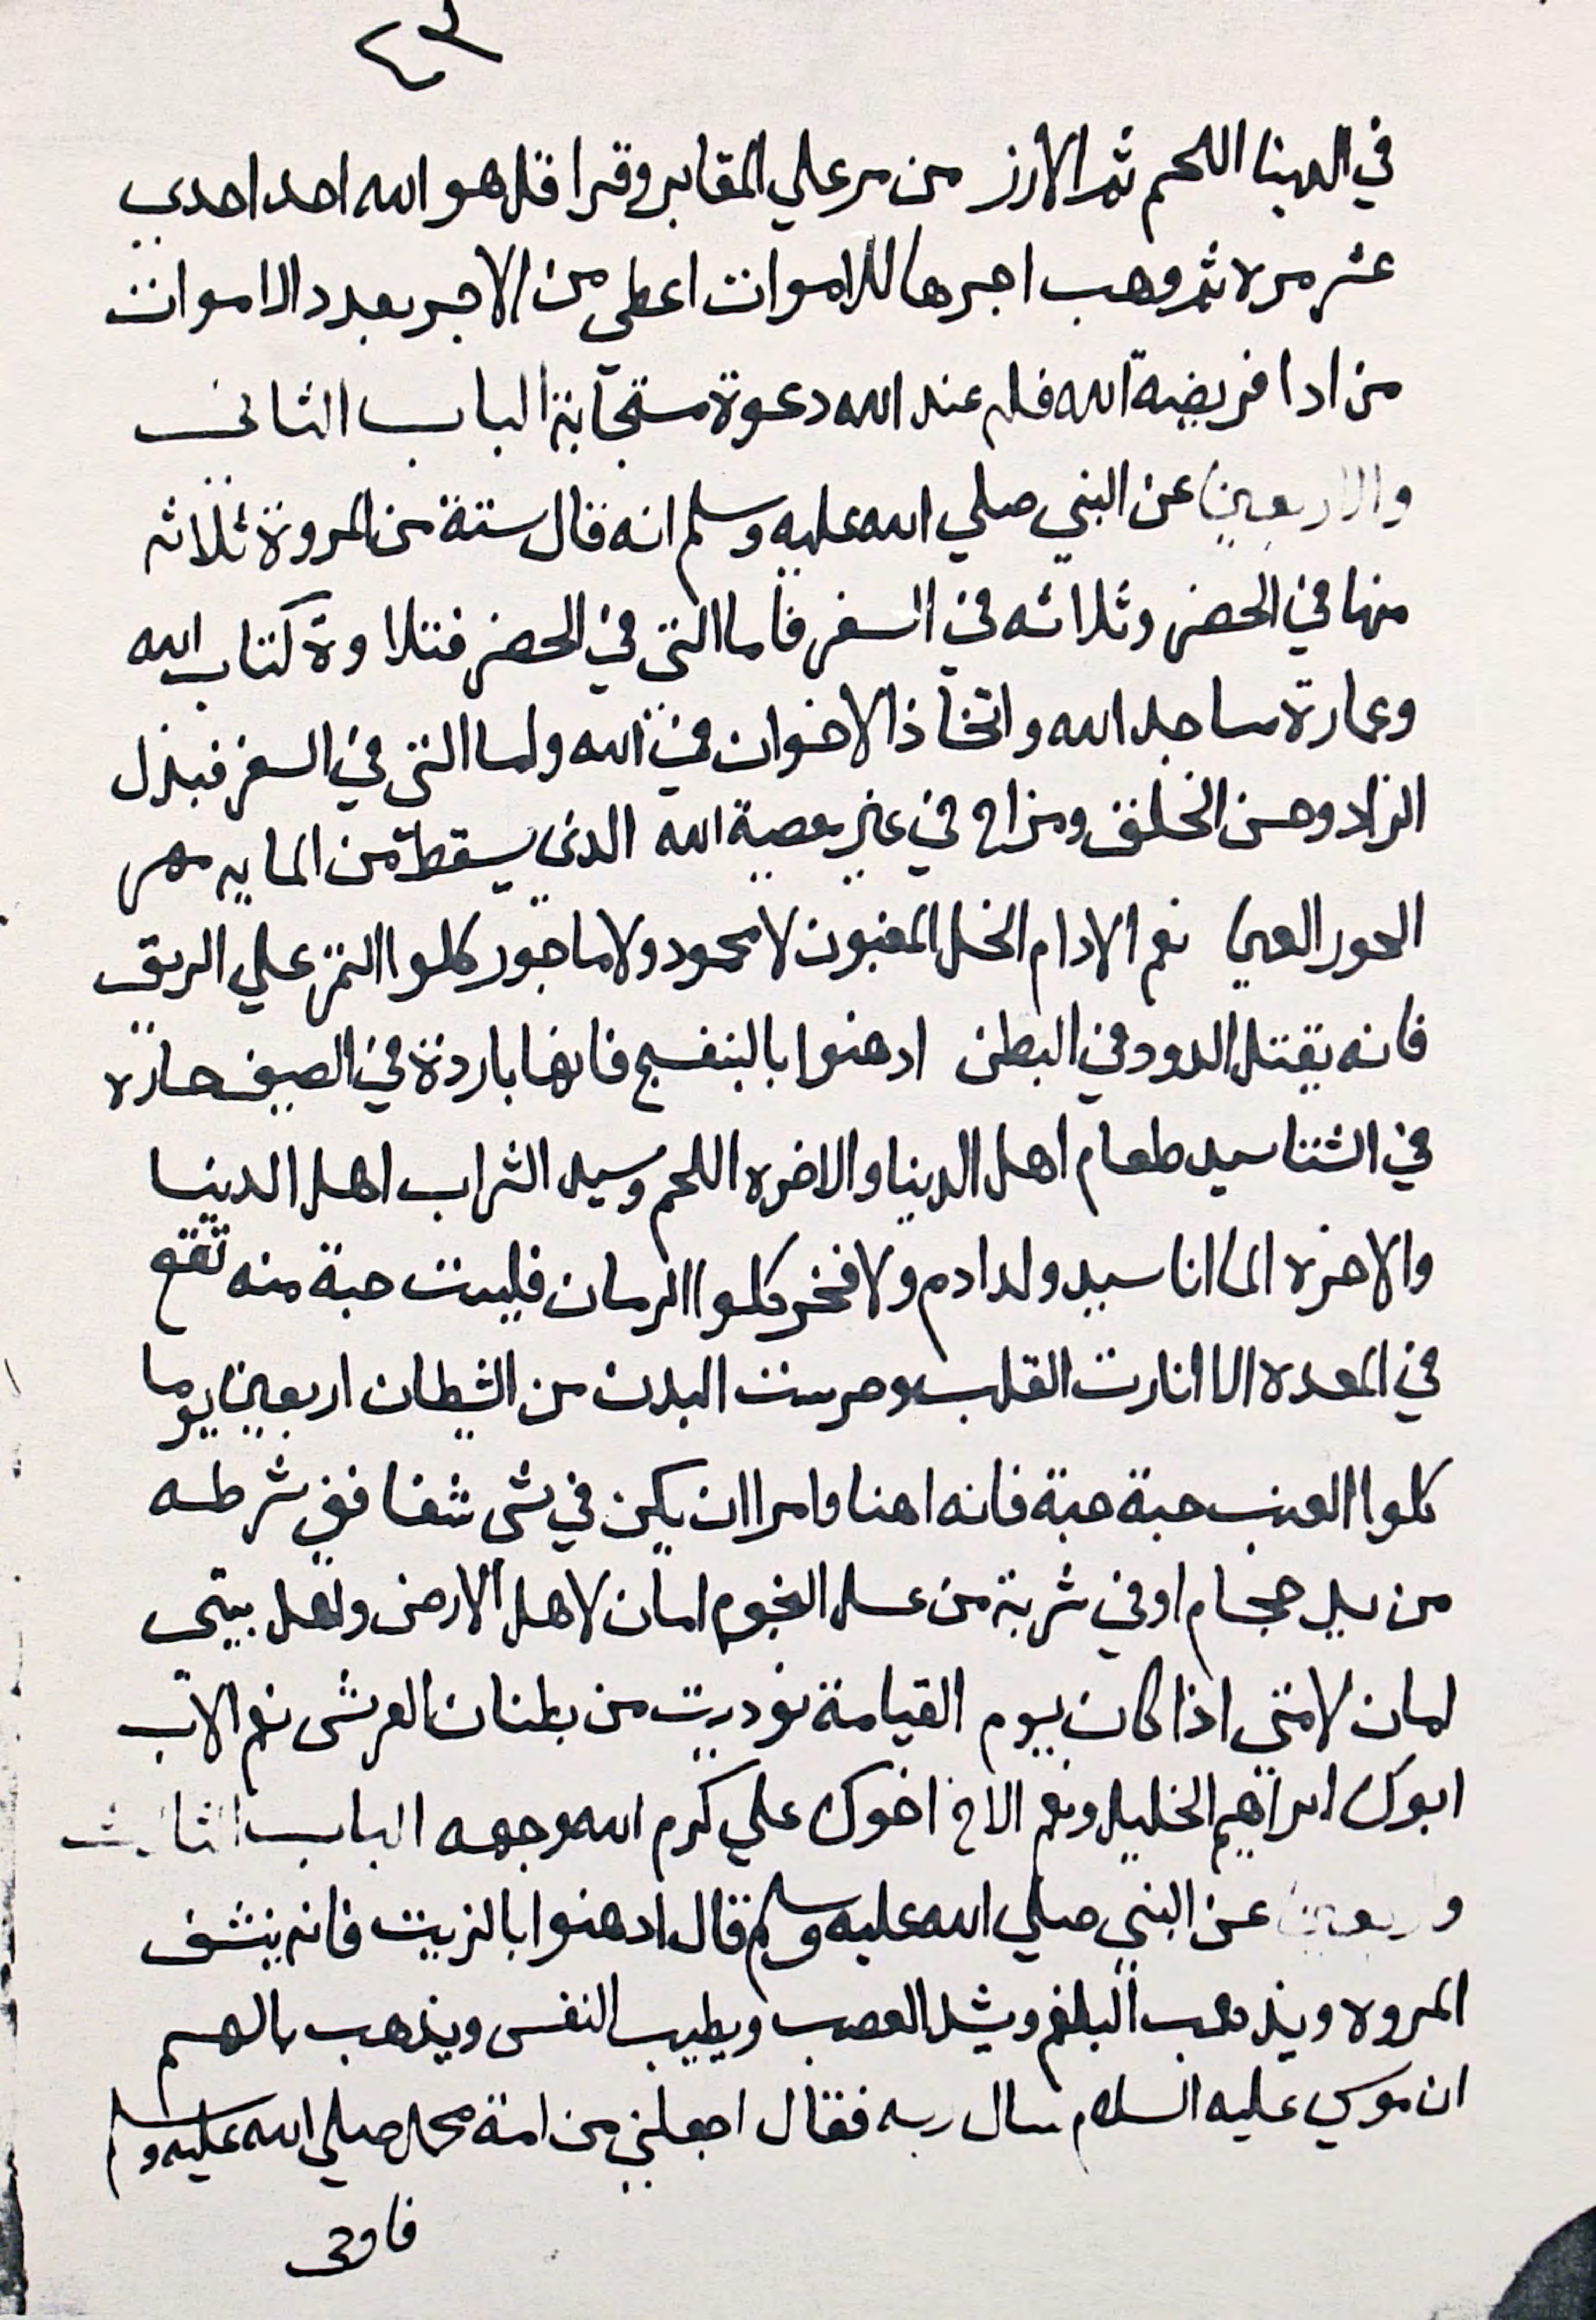 ٤٣
في الدينا اللحم ثم الارز من مر علي المقابر وقرا قل هو الله احد احدي
عشر مرة ثم وهب اجرها للاموات اعطي من الاجر بعدد الاموات
من ادا فريضة الله فله عند الله دعوة مستجابة الباب الثاني
والاربعين عن النبي صلي الله عليه وسلم انه قال ستة من المروة ثلاثه
منها في الحضر وثلاثه في السفر فاما التي في الحضر فتلاوة كتاب الله
وعمارة مساجد الله واتخاذ الاخوان في الله واما التي في السفر فبذل
الزاد وحسن الخلق ومزاح في غير معصية الله الذي يسقط من المايه مهر
الحور العين نعم الادام الخل المغبون لا محمود ولا ماجور كلوا التمر علي الريق
فانه يقتل الدود في البطن ادهنوا بالبنفسج فانها باردة في الصيف حاره
في الشتا سيد طعام اهل الدينا والاخره اللحم وسيد الشراب اهل الدنيا
والاخره الما انا سيد ولد ادم ولا فخر كلوا الرمان فليست حبة منه تقع
في المعده الا انارت القلب وحرست البدن من الشيطان اربعين يوما
كلوا العنب حبة حبة فانه اهنا وامرا ان يكن في شي شفا ففي شرطه
من يد حجام او في شربة من عسل النجوم امان لاهل الارض واهل بيتي
امان لامتي اذا كان يوم القيامة نوديت من بطنان العرش نعم الاب
ابوك ابراهيم الخليل ونعم الاخ اخوك علي كرم الله وجهه الباب الثالث
واربعين عن النبي صلي الله عليه وسلم قال ادهنوا بالزيت فانه ينشف
المروه ويذهب البلغم ويشد العصب ويطيب النفس ويذهب بالهم
ان موسي عليه السلام سال ربه فقال اجعلني من امة محمد صلي الله عليه وسلم
فاوحى